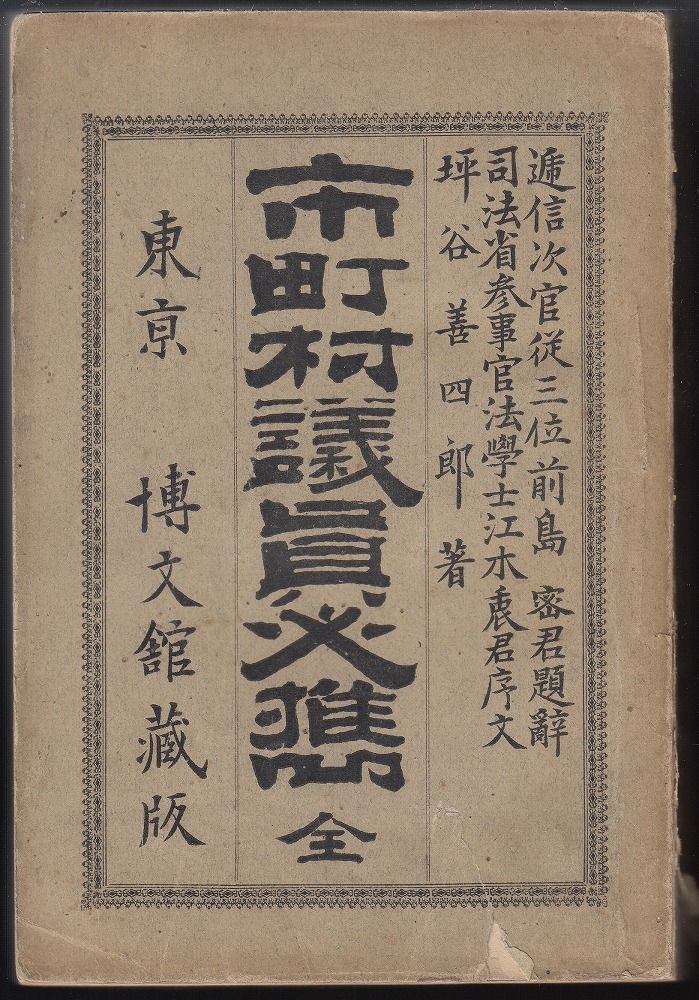 遞信次官從三位前島　密君題辭
司法省參事官法學士江木衷君序文
坪谷善四郎著
市町村議員必携　全
東京　博文館藏版